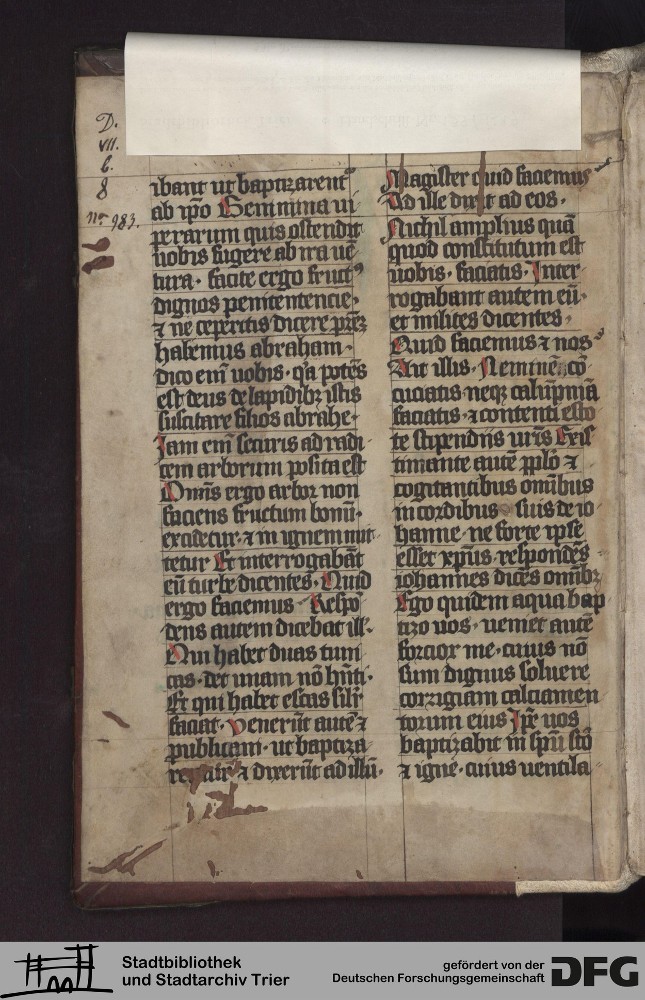 D.
VII.
b.
8
nº 983.
ibant ut baptizarent᷒
ab ip̄o Genimina ui
perarum quis ostendit
uobis fugere ab ira uē
tura · facite ergo fructꝰ
dignos penitentencie ·
⁊ ne ceperitis dicere pr̄eꝫ
habemus abraham ·
dico em̄ uobis · q̇a potēs
est deus de lapidibꝫ istis
suscitare filios abrahe ·
Iam em̄ securis ad radi
cem arborum posita est
Omīs ergo arbor non
faciens fructum bonū ·
excidetur · ⁊ in ignem mit
tetur Et interrogabāt
eū turbe dicentes · Quid
ergo faciemus · Respō
dens autem dicebat ill̄ ·
Qui habet duas tuni
cas · det unam nō hn̄ti ·
Et qui habet escas sil̄r
faciat · Venerūt autē ⁊
publicani · ut baptiza
rentur ⁊ dixerūt ad illū ·
Magister quid faciemus
Ad ille dixit ad eos ·
Nichil amplius quā
quod constitutum est
uobis · faciatis · Inter
rogabant autem eū ·
et milites dicentes ·
Quid faciemus ⁊ nos ·
Ait illis · Neminē cō
cuciatis · neqꝫ calūpniā
faciatis · ⁊ contenti esto
te stipendiis ur̄is Exis
timante autē pplō ⁊
cogitantibus omībus
in cordibus suis de io
hanne · ne forte ipse
esset xp̄us · respondēs
iohannes dicēs omībꝫ
Ego quidem aqua bap
tizo uos · ueniet autē
forcior me · cuius nō
sum dignus soluere
corrigiam calciamen
torum eius Ip̄e uos
baptizabit in sp̄u sc̄o
⁊ igne · cuius uentila
Stadtbibliothek
und Stadtarchiv Trier
gefördert von der
Deutschen Forschungsgemeinschaft
DFG